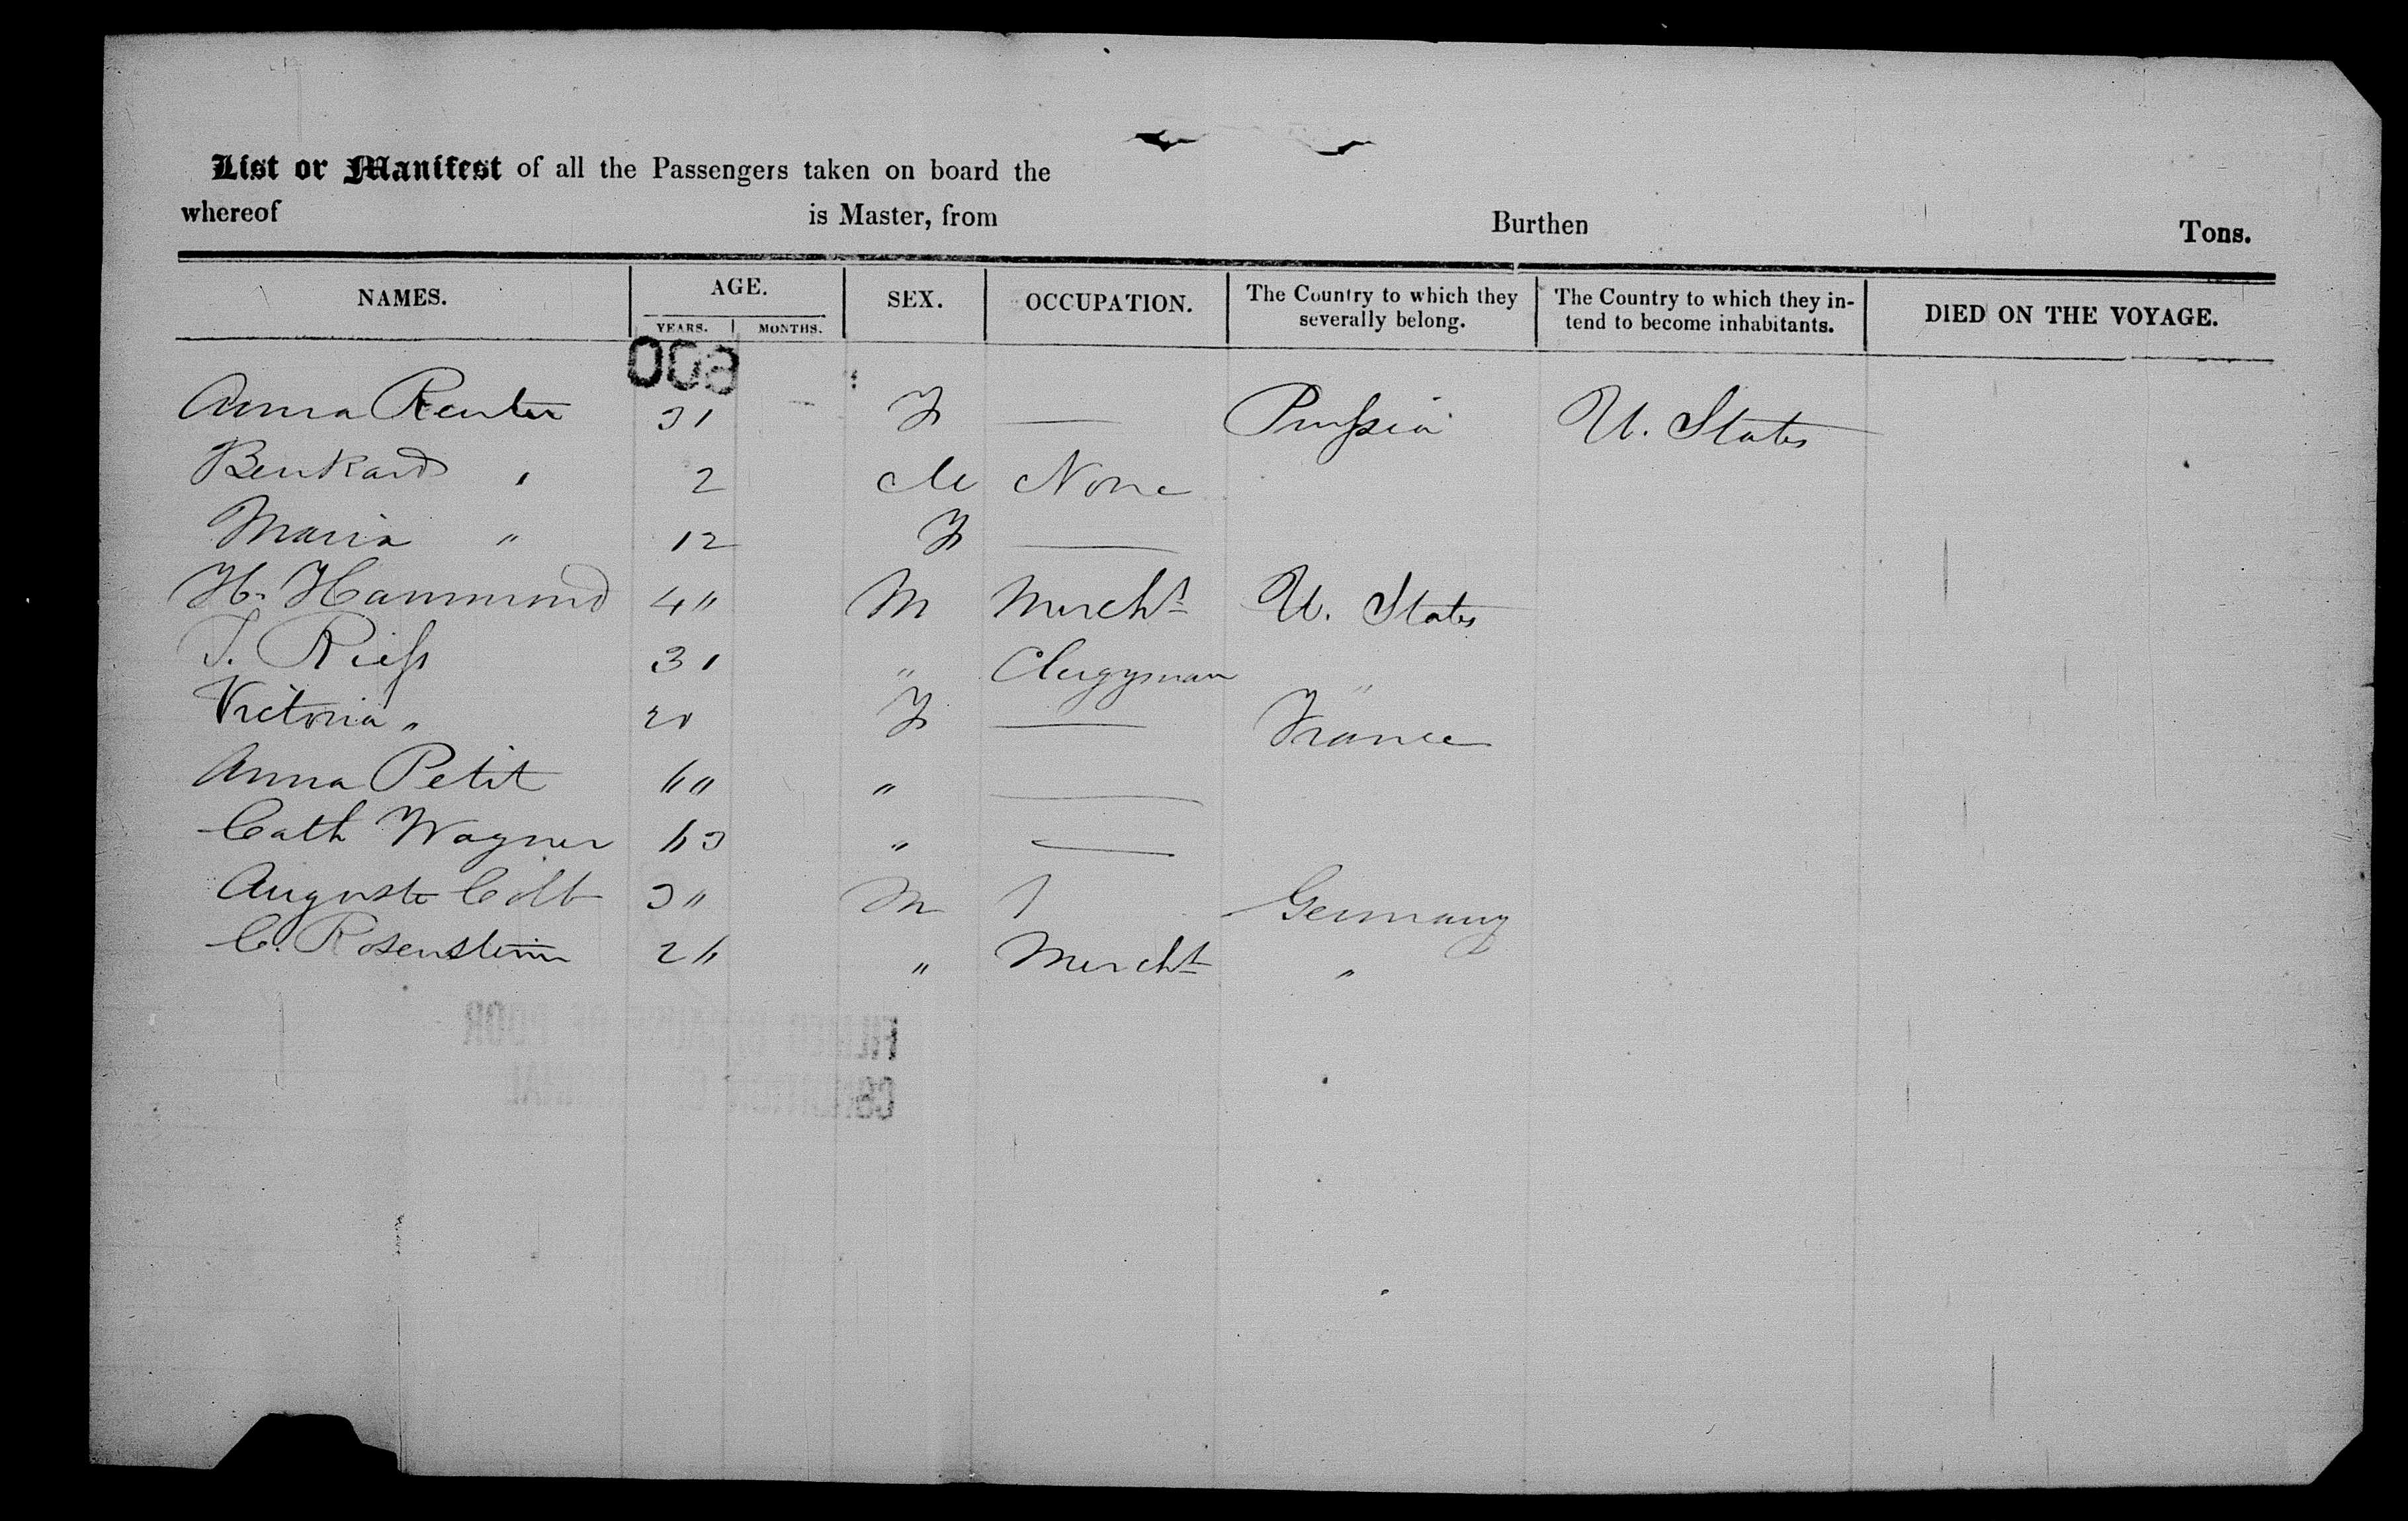 List or Manifest of all the Passengers taken on board the
whereof is Master, from Burthen Tons.
NAMES. AGE. SEX. OCCUPATION. The Country to which they severally belong. The Country to which they intend to become inhabitants. DIED ON THE VOYAGE.
YEARS. MONTHS.
Anna Reuter 31 F — Prussia U. States
Benkard " 2 M None
Maria " 12 F —
H. Hammond 4" M Mercht
U. States
J. Riess 31 " Clergyman "
Victoria " 20 F — France
Anna Petit 60 " —
Cath Wagner 63 " —
Auguste Colb 30 M Germany
C. Rosenstein 26 " Mercht "